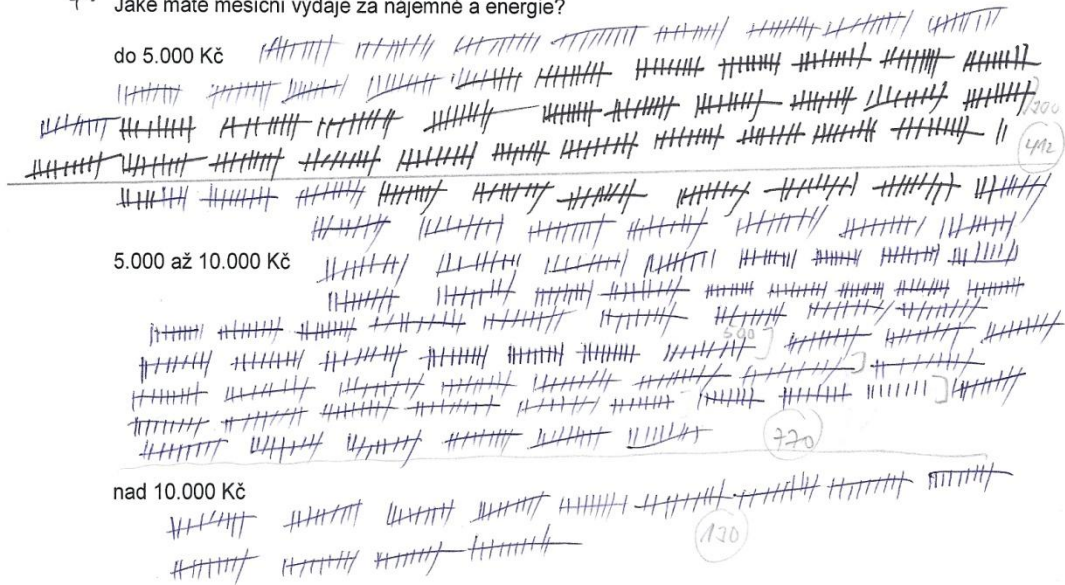 Jaké máte měsíční výdaje za nájemné a energie?
do 5.000 Kč
200
412
5.000 až 10.000 Kč
500
770
nad 10.000 Kč
130